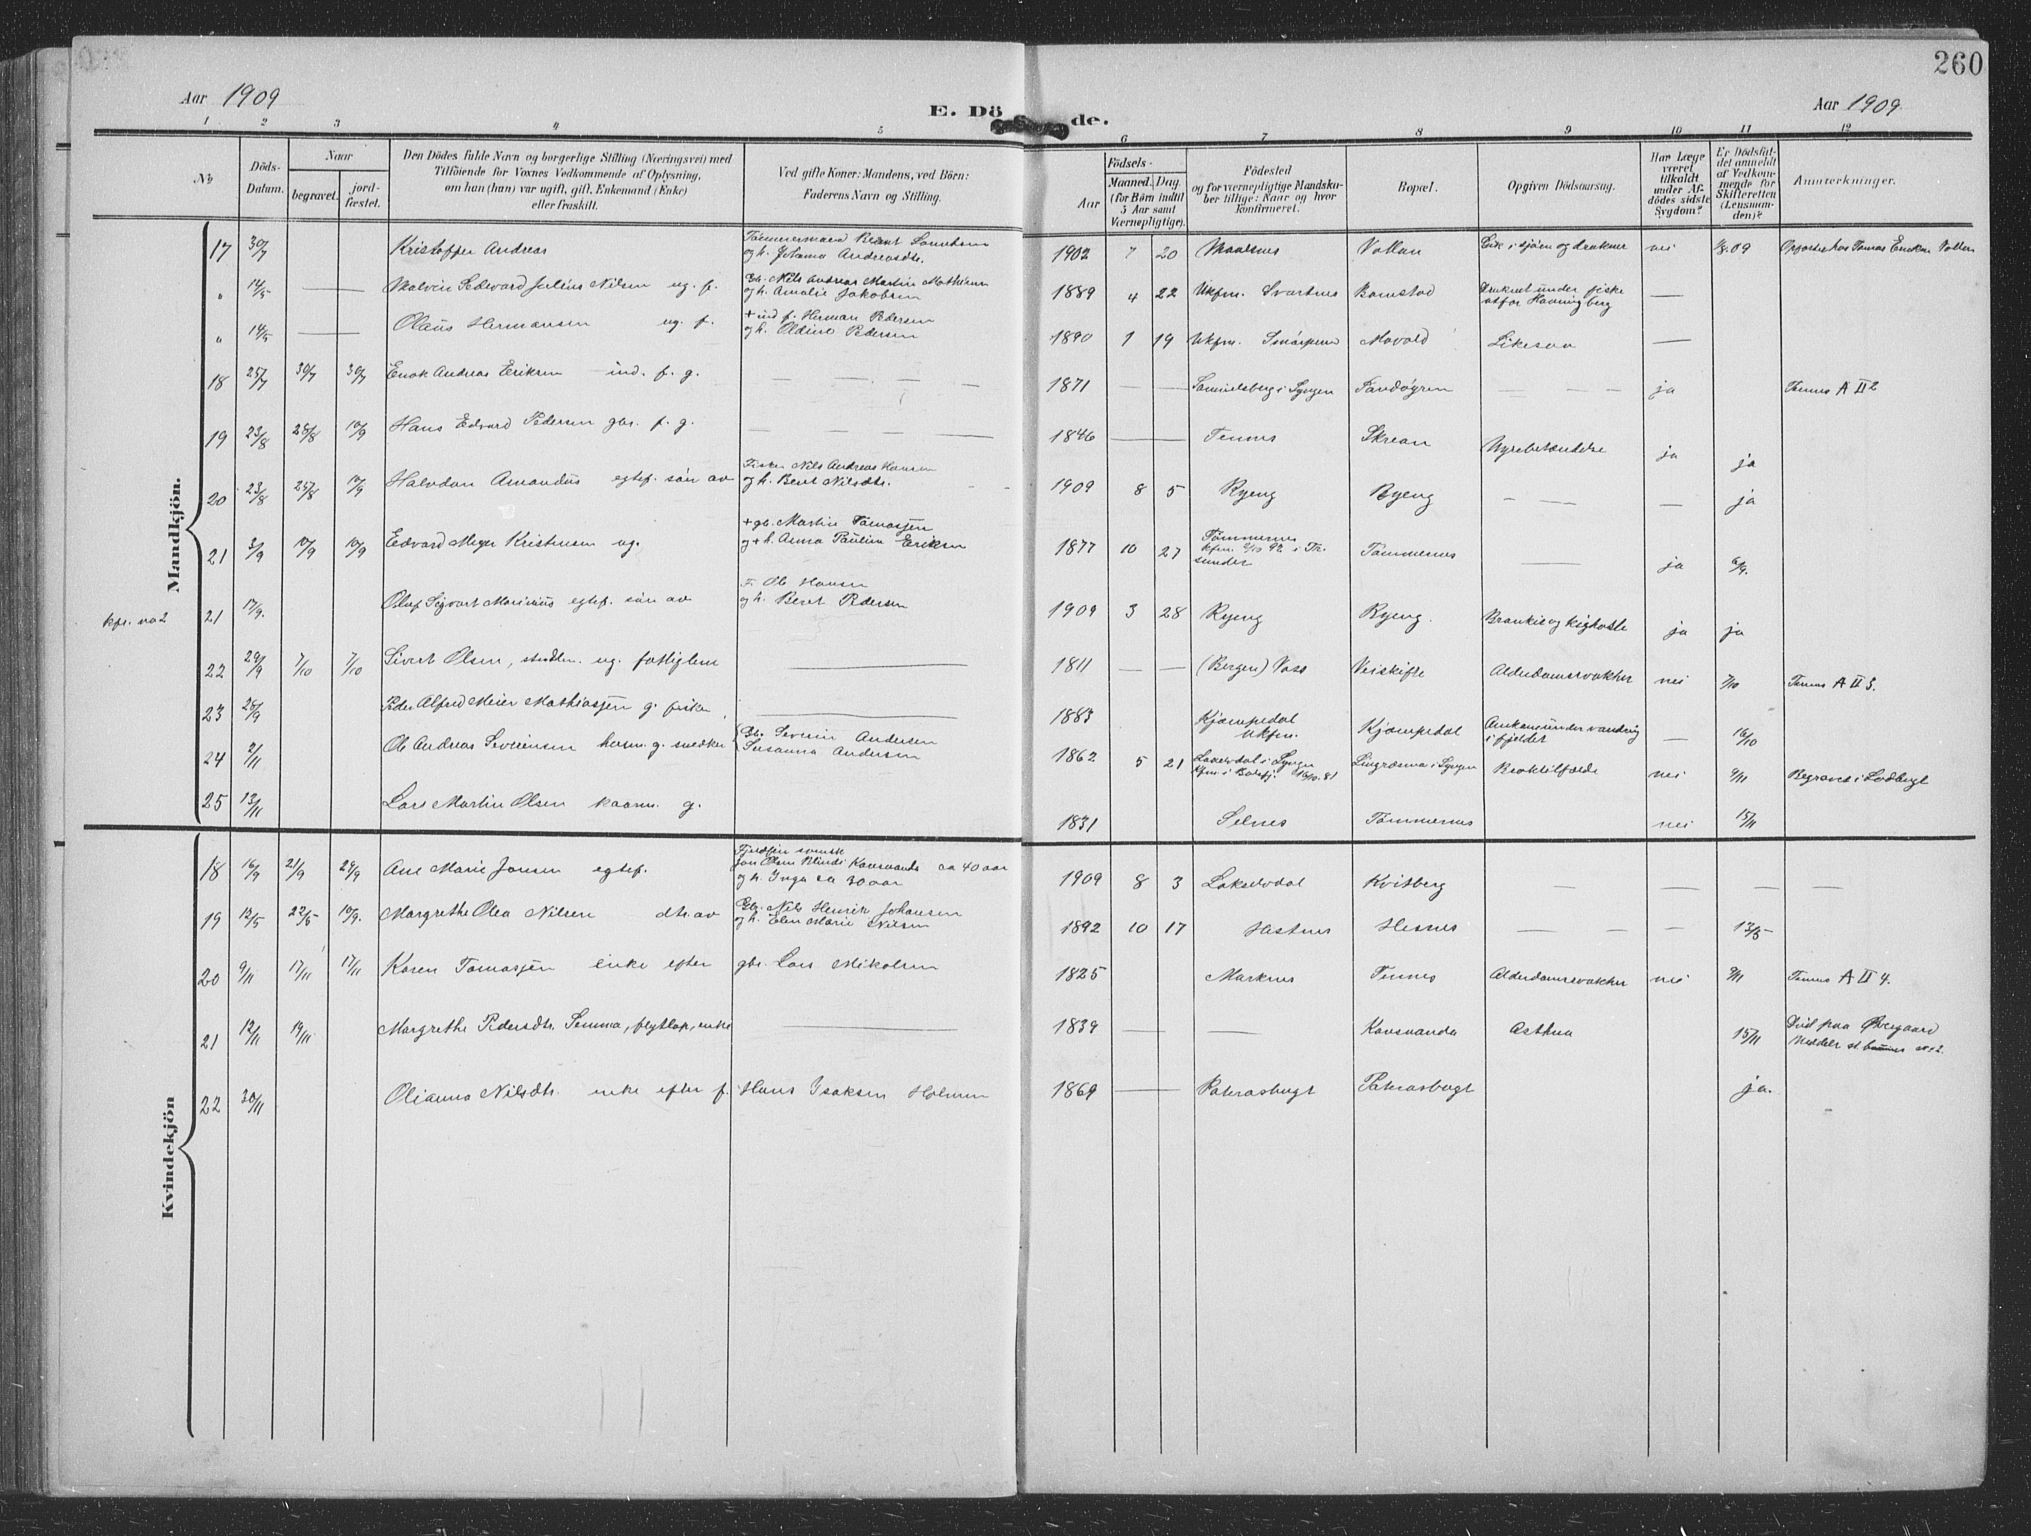 260
Aar 1909
E. Dö de.
Aar 1909
1 2 3 4 5 6 7 8 9 10 11 12
No
Döds-
Datum.
Naar
begravet.
jord-
fæstet.
Den Dödes fulde Navn og borgerlige Stilling (Næringsvei) med
Tilföiende for Voxnes Vedkommende af Oplysning,
om han (hun) var ugift, gift, Enkemand (Enke)
eller fraskilt.
Ved gifte Koner: Mandens, ved Börn:
Faderens Navn og Stilling.
Födsels-
Aar
Maaned. Dag.
(for Börn indtil
5 Aar samt
Værnepligtige).
Födested
og for værnepligtige Mandska-
ber tillige: Naar og hvor
konfirmeret.
Bopæl.
Opgiven Dödsaarsag.
Har Læge
været
tilkaldt
under Af-
dödes sidste
Sygdom?
Er Dödsfal-
det anmeldt
af Vedkom-
mende for
Skifteretten
(Lensman-
den)?
Anmærkninger.
Mandkjön.
17 30/7 Kristoffer Andreas Tömmermand Bernt og h. Johanna Andreasdtr. 1902 7 20 Maalsnes Vollan i sjöen og druknet nei 09
" 14/5 — Malvin Edevard Julius Nilsen ug. f. Gb. Nils Andreas Martin Mathisen og h. Amalie Jakobsen 1889 4 22 Ukfm. Svartnes Bomstad Druknet under fiske utfor Havningberg —
" 14/5 — Olaus Hermansen ug. f. + ind. f. Herman Pedersen og h. Oldine Pedersen 1890 1 19 Ukfm. Movold Likesaa —
18 25/7 30/7 30/7 Enok Andreas Eriksen ind. f. g. — — — — 1871 — — Samuelsberg i Lyngen Sandöyren — — ja Tennes A II 2
19 23/8 28/8 19/9 Hans Edvard Pedersen gbr. f. g. — — — 1846 — Tennes Skrean Nyrebetændelse ja ja
20 23/8 25/8 19/9 Halvdan Amandus egtef. sön av Fisker Nils Andreas Hansen og h. Beret Nilsdtr. 1909 8 5 Ryeng Ryeng — — — ja
21 3/9 19/9 19/9 Edvard Meyer Kristensen ug. + gb. Martin Tomasjen og + h. Anna Paulina Eriksen 1877 10 27 Tömmernes kfm. 92 i Tr. sundet Tömmernes — ja 6/9.
kfr. no 2 21 17/9. Oluf Sigvart Marinius egtef. sön av F. Ole Hansen og h. Beret Pedersen 1909 3 28 Ryeng Ryeng. Bronkit og kighoste ja ja
22 29/9 7/10 7/10 Sivert Olsen, ug. fattiglem — 1811 — — (Bergen) Voss Veiskifte Alderdomssvakhet nei 7/10 Tennes A II 3.
23 28/9 Peder Alfred Meier Mathiasjen g. fisker — 1883 Kjæmpedal Ukfm. Kjæmpedal Omkom under vandring i fjeldet — 16/10
24 2/11 Ole Andreas Severinsen g. snedker Gb. Severin Andersen Susanna Andersen 1862 5 21 Lakselvdal i Lyngen kfm. i Balsfj. 81 i Lyngen nei 9/11 Begravet i
25 13/11 Lars Martin Olsen kaarm. g. 1831 Selnes Tömmernes nei 15/11
Kvindekjön
18 16/9 21/9 29/9 Ane Marie Jonsen egtef. Fjeldfin svensk Jon Olsen Blind i Kavsvanda ca 40 aar og h. Inga ca 30 aar 1909 8 3 Lakselvdal Kvitberg — — — —
19 12/5 22/5 19/9. Margrethe Olea Nilsen dtr. av Gb. Nils Henrik Johansen og h. Elen Marie Nilsen 1892 10 17 Hestnes Hesnes — — 13/5
20 9/11 17/11 17/11 Karen Tomasjen enke efter gbr. Lars Mikalsen 1825 Marknes Tennes Alderdomssvakhet nei 9/11 Tennes A II 4.
21 12/11 19/11 Margrethe Pedersdtr. Semma, flytlap, enke — 1839 — — Kavsvanda Asthma 15/11 Död paa Övergaard
22 30/11 Olianna Nilsdtr. enke efter f. Hans Isaksen Holmen 1869 — Paterasbugt Paterasbugt ja.